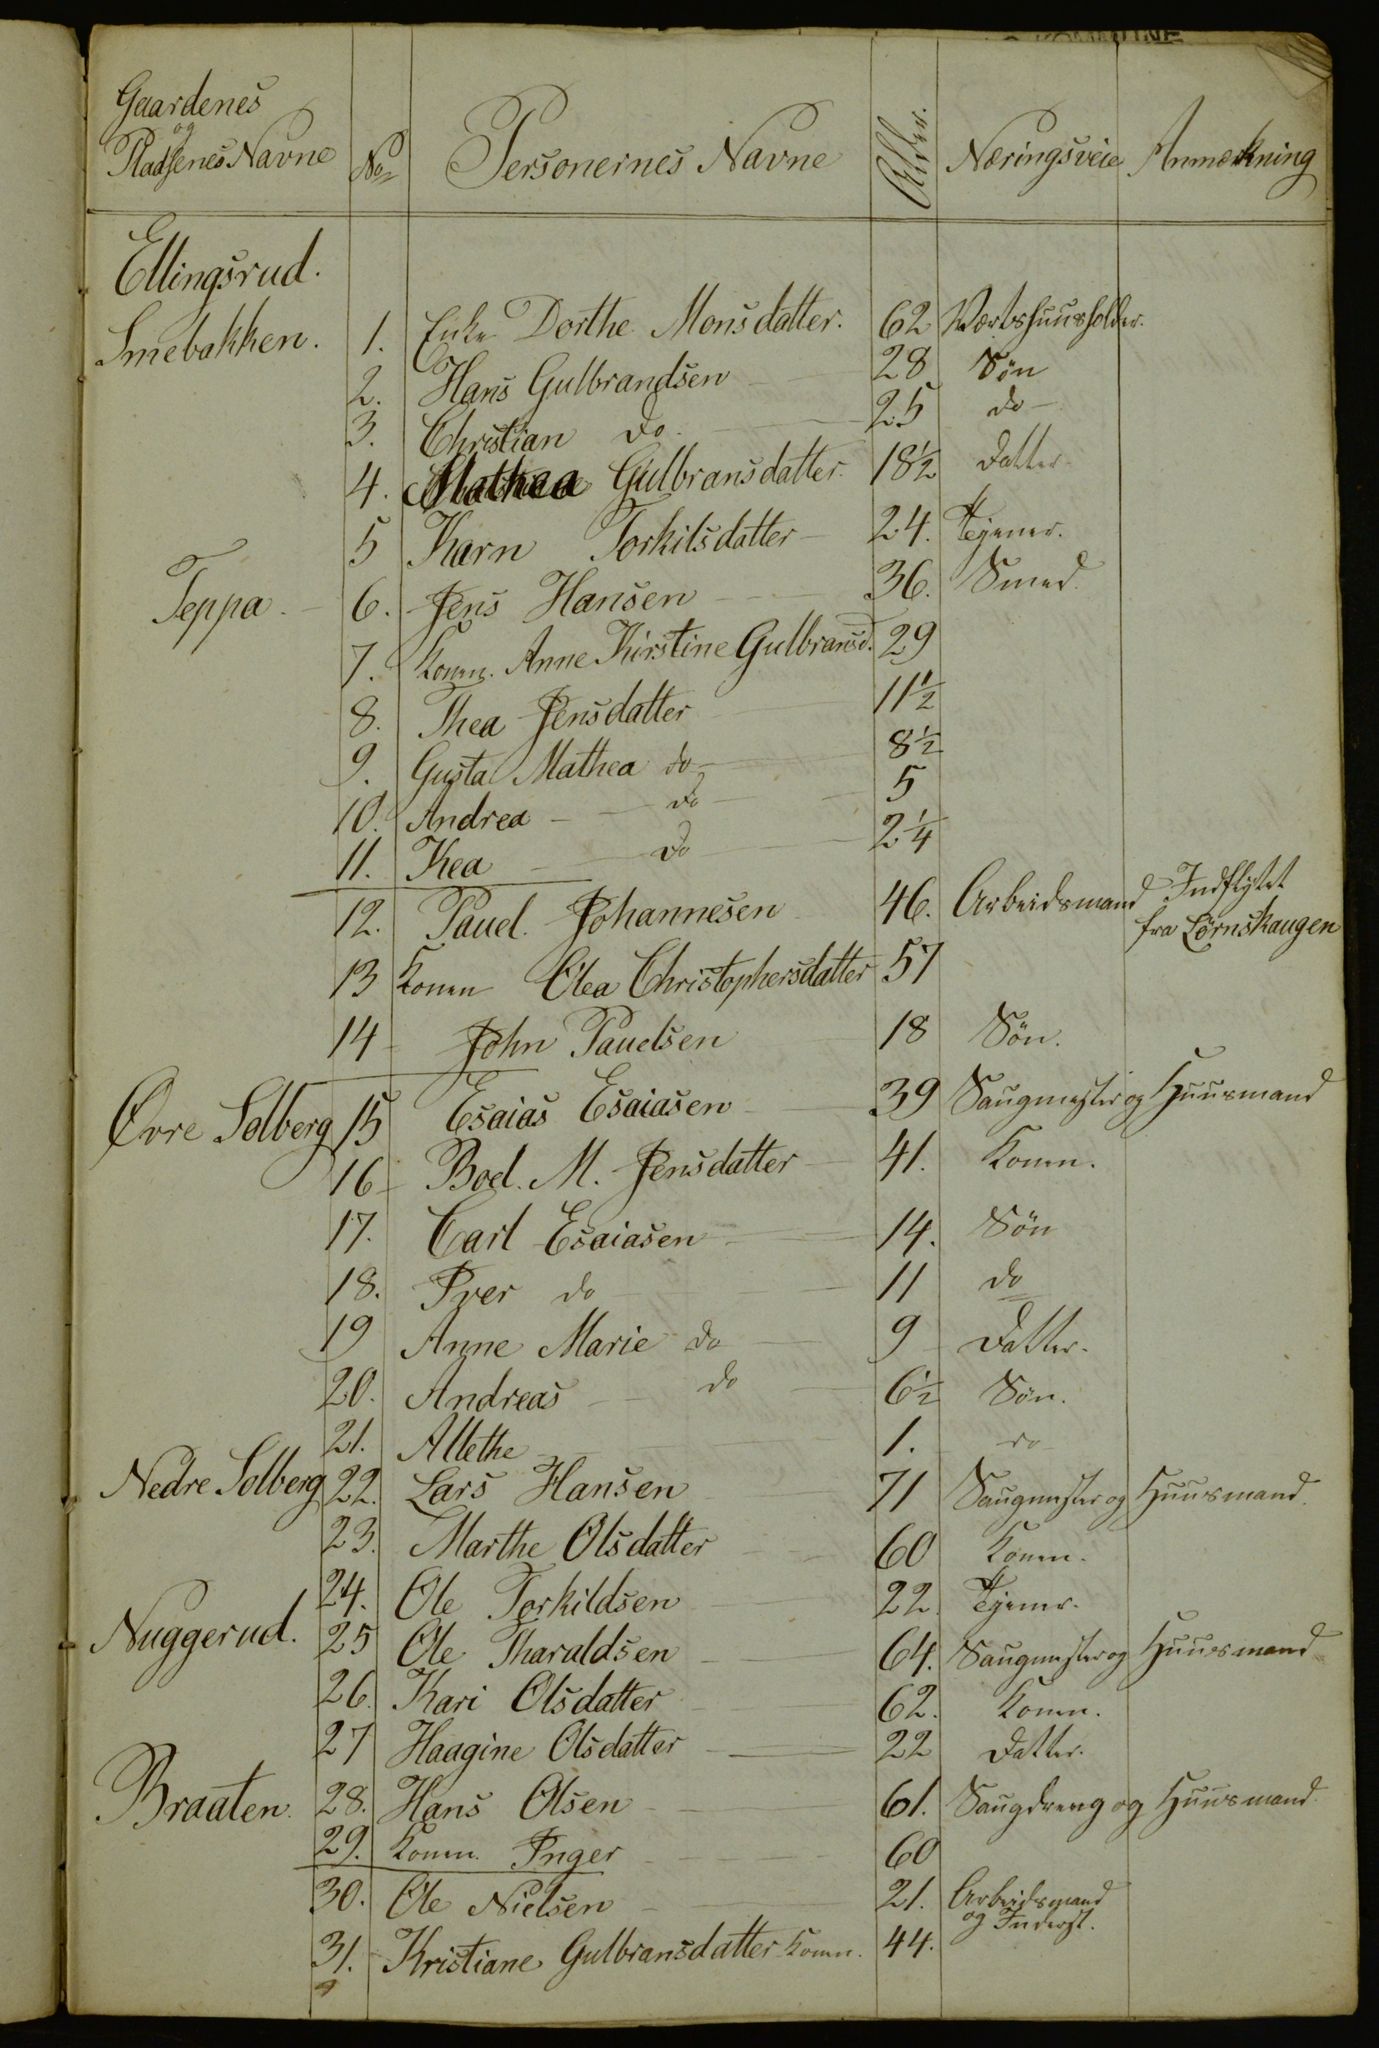 KOMMUNE
Gaardenes
og
Pladsenes Navne No Personernes Navne Alder. Næringsveie Anmærkning
Ellingsrud.
Smebakken. 1. Enke Dorthe Monsdatter. 62 Værtshuusholder.
2. Hans Gulbrandsen 28 Søn
3. Christian do 25 do
4. Mathea Gulbransdatter 18½ Datter
5 Karn Torkilsdatter 24. Tjener.
Teppa. 6. Jens Hansen 36. Smed.
7. Konen. Anne Kirstine Gulbransd. 29
8. Thea Jensdatter 11½
9. Gusta Mathea do 8½
10. Andrea do 5
11. Kea do 2¼
12. Pauel. Johannesen 46. Arbeidsmand Indflytet
fra Lørnskaugen
13 Konen Olea Christophersdatter 57
14 John Pauelsen 18 Søn.
Øvre Solberg 15 Esaias Esaiasen 39 Saugmester og Huusmand
16 Boel. M. Jensdatter 41. Konen.
17. Carl Esaiasen 14. Søn
18. Iver do 11 do
19 Anne Marie do 9 Datter.
20. Andreas do 6½ Søn.
21. Allethe 1. do
Nedre Solberg 22. Lars Hansen 71 Saugmester og Huusmand.
23. Marthe Olsdatter 60 Konen.
24. Ole Torkildsen 22. Tjener.
Nuggerud. 25 Ole Tharaldsen 64. Saugmester og Huusmand
26. Kari Olsdatter 62. Konen.
27 Haagine Olsdatter 22 Datter.
Braaten. 28. Hans Olsen 61. Saugdreng og Huusmand.
29. Konen. Inger 60
30. Ole Nielsen 21. Arbeidsmand
og Inderst.
31. Kristiane Gulbransdatter Konen. 44.